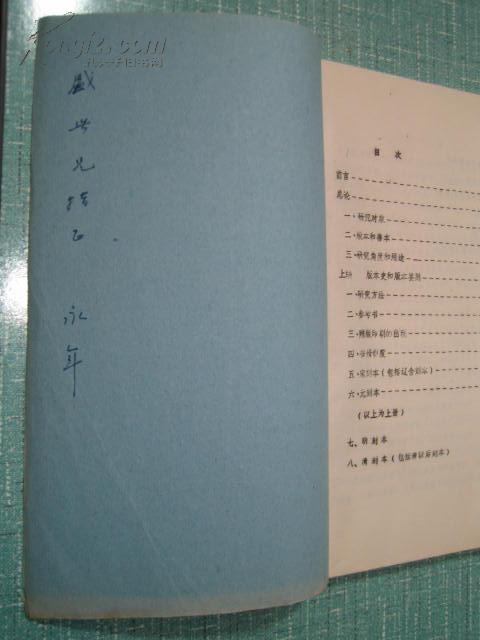 Kongfz.com
孔夫子旧书网
盛 兄指正
永年
目 次
前言
总论
一、研究对象
二、版本和善本
三、研究角度和用途
上编 版本史和版本鉴别
一、研究方法
二、参考书
三、雕版印刷的出现
四、
五、宋刻本(包括辽金刻本)
六、元刻本
(以上为上册)
七、明刻本
八、清刻本(包括清以后刻本)